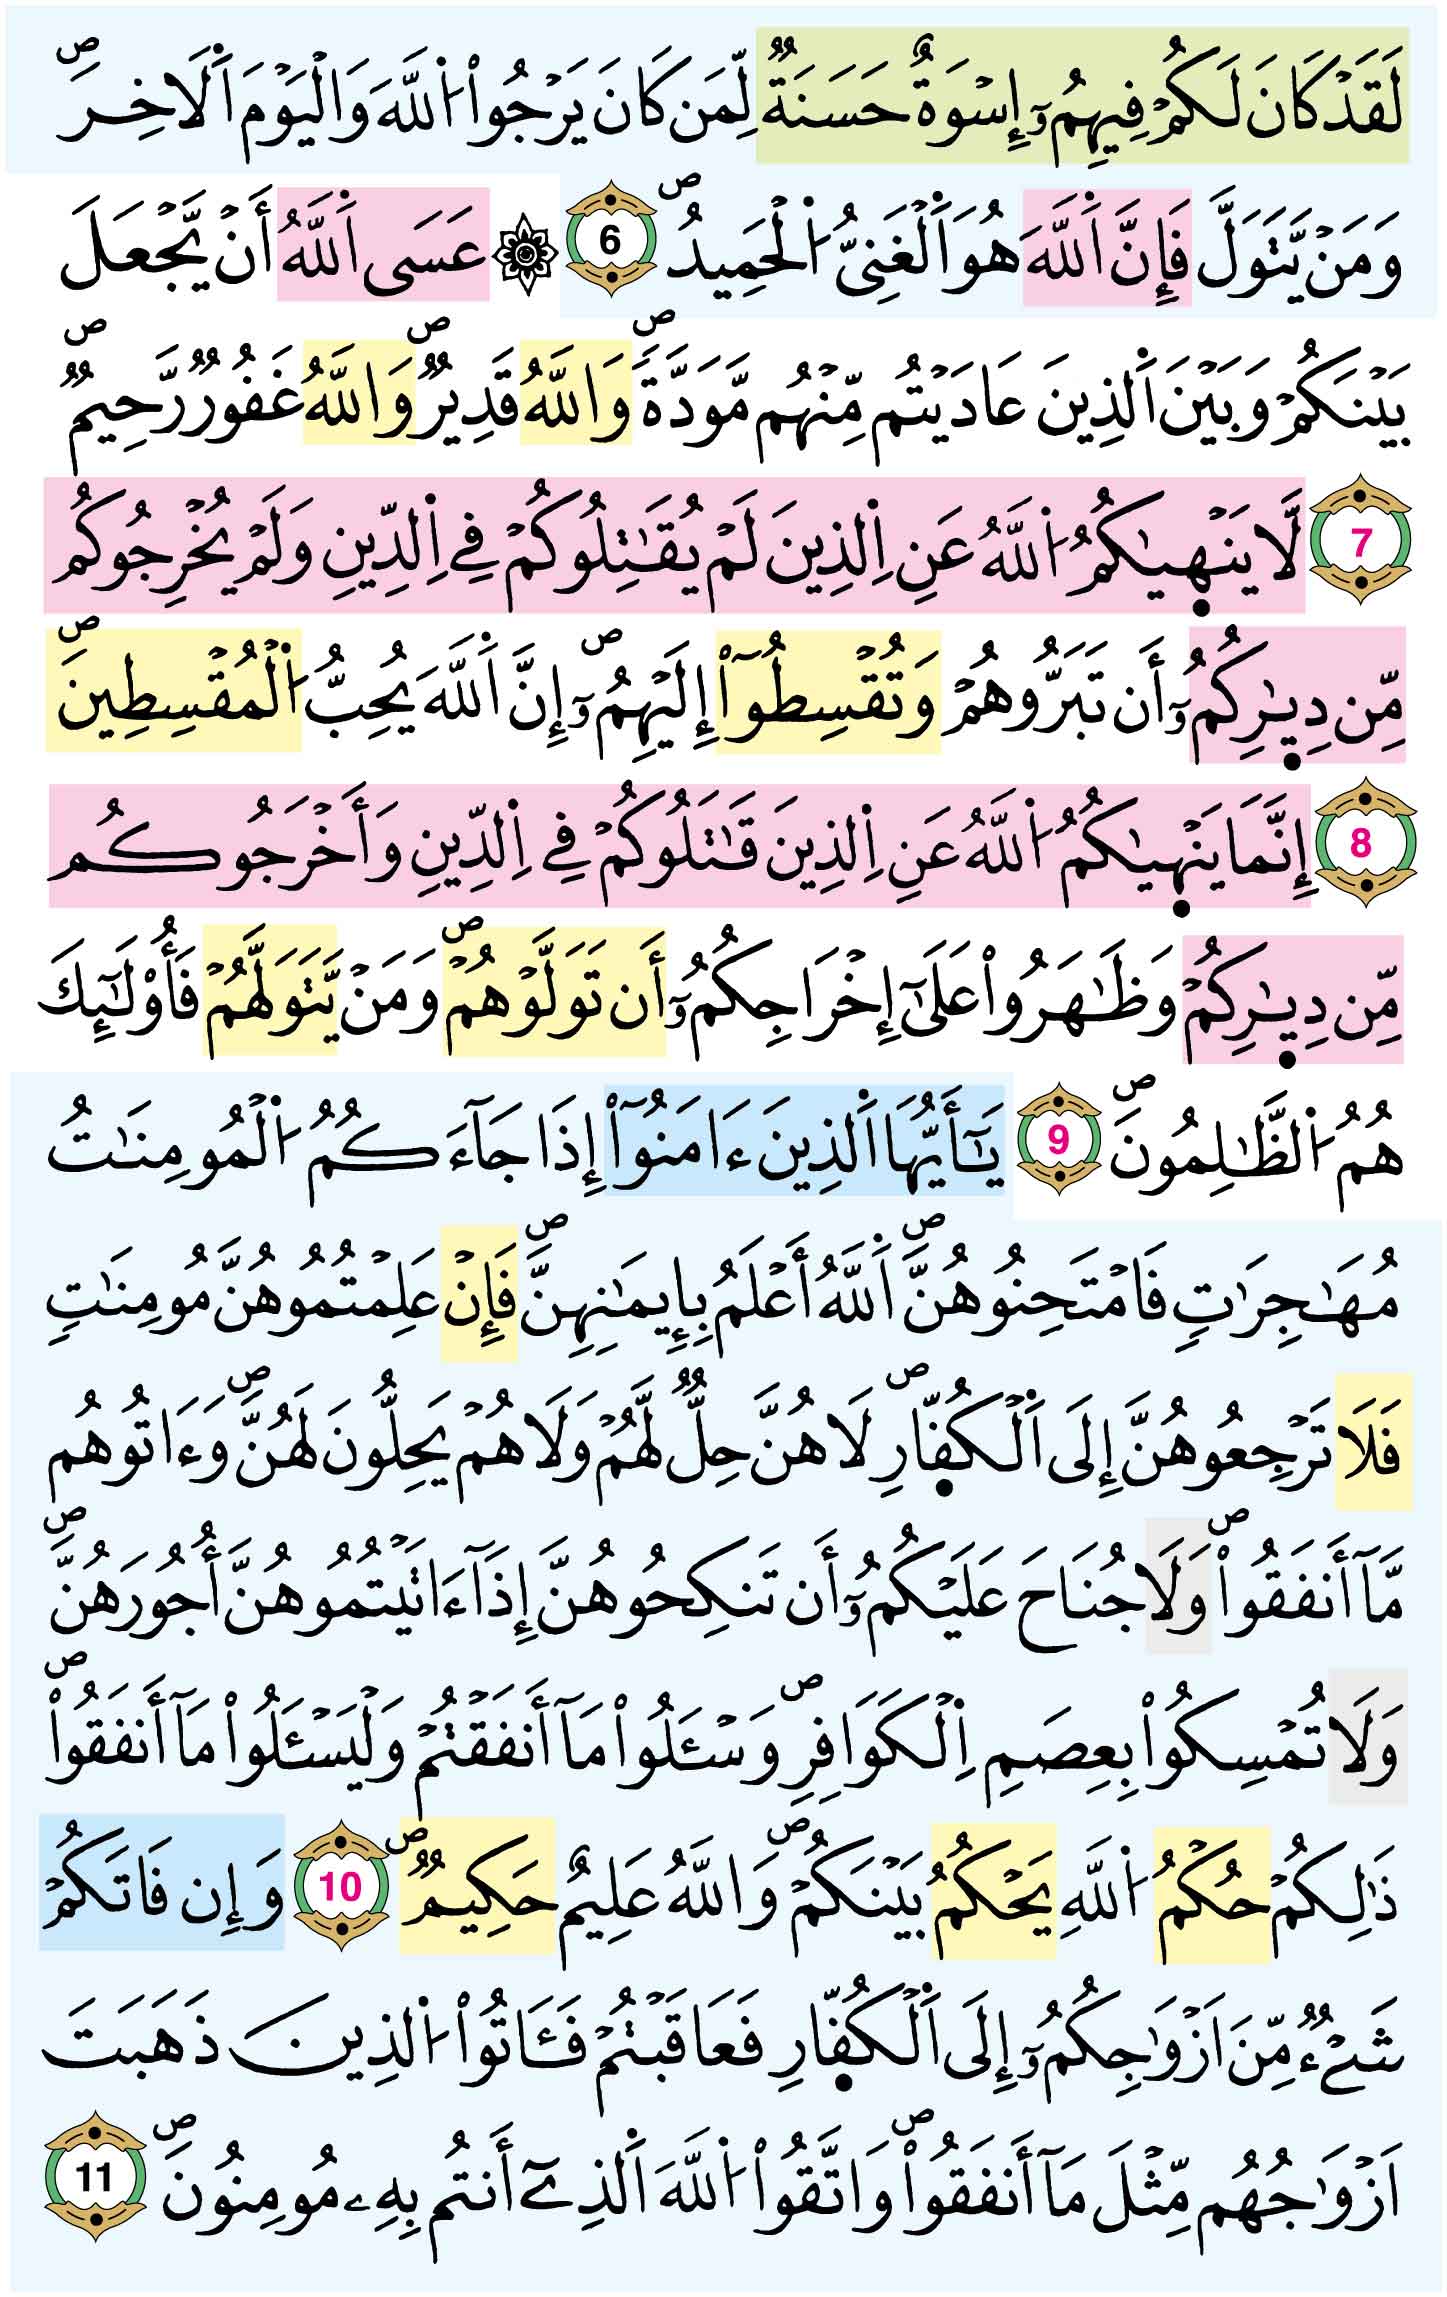 لَقَدْ كَانَ لَكُمْ فِيهِمُۥٓ إِسْوَةٌ حَسَنَةٌ لِّمَن كَانَ يَرْجُوا۟ اُ۬للَّهَ وَالْيَوْمَ اَ۬لَاخِرَۖ
وَمَنْ يَّتَوَلَّ فَإِنَّ اَ۬للَّهَ هُوَ اَ۬لْغَنِيُّ اُ۬لْحَمِيدُۖ 6 ۞ عَسَى اَ۬للَّهُ أَنْ يَّجْعَلَ
بَيْنَكُمْ وَبَيْنَ اَ۬لذِينَ عَادَيْتُم مِّنْهُم مَّوَدَّةٗۖ وَاللَّهُ قَدِيرٞۖ وَاللَّهُ غَفُورٞ رَّحِيمٞۖ
7 لَّا يَنْهَيٰكُمُ اُ۬للَّهُ عَنِ اِ۬لذِينَ لَمْ يُقَٰتِلُوكُمْ فِي اِ۬لدِّينِ وَلَمْ يُخْرِجُوكُم
مِّن دِيٰ۪رِكُمُۥٓ أَن تَبَرُّوهُمْ وَتُقْسِطُوٓا۟ إِلَيْهِمُۥٓۖ إِنَّ اَ۬للَّهَ يُحِبُّ اُ۬لْمُقْسِطِينَۖ
8 إِنَّمَا يَنْهَيٰكُمُ اُ۬للَّهُ عَنِ اِ۬لذِينَ قَٰتَلُوكُمْ فِي اِ۬لدِّينِ وَأَخْرَجُوكُم
مِّن دِيٰ۪رِكُمْ وَظَٰهَرُوا۟ عَلَىٰٓ إِخْرَاجِكُمُۥٓ أَن تَوَلَّوْهُمْۖ وَمَنْ يَّتَوَلَّهُمْ فَأُوْلَٰٓئِكَ
هُمُ اُ۬لظَّٰلِمُونَۖ 9 يَٰٓأَيُّهَا اَ۬لذِينَ ءَامَنُوٓا۟ إِذَا جَآءَكُمُ اُ۬لْمُومِنَٰتُ
مُهَٰجِرَٰتٖ فَامْتَحِنُوهُنَّۖ اَ۬للَّهُ أَعْلَمُ بِإِيمَٰنِهِنَّۖ فَإِنْ عَلِمْتُمُوهُنَّ مُومِنَٰتٖ
فَلَا تَرْجِعُوهُنَّ إِلَى اَ۬لْكُفّ۪ارِۖ لَا هُنَّ حِلّٞ لَّهُمْ وَلَا هُمْ يَحِلُّونَ لَهُنَّۖ وَءَاتُوهُم
مَّآ أَنفَقُوا۟ۖ وَلَا جُنَاحَ عَلَيْكُمُۥٓ أَن تَنكِحُوهُنَّ إِذَآ ءَاتَيْتُمُوهُنَّ أُجُورَهُنَّۖ
وَلَا تُمْسِكُوا۟ بِعِصَمِ اِ۬لْكَوَافِرِۖ وَسْـَٔلُوا۟ مَآ أَنفَقْتُمْ وَلْيَسْـَٔلُوا۟ مَآ أَنفَقُوا۟ۖ
ذَٰلِكُمْ حُكْمُ اُ۬للَّهِ يَحْكُمُ بَيْنَكُمْۖ وَاللَّهُ عَلِيمٌ حَكِيمٞۖ 10 وَإِن فَاتَكُمْ
شَےْءٞ مِّنَ اَزْوَٰجِكُمُۥٓ إِلَى اَ۬لْكُفّ۪ارِ فَعَاقَبْتُمْ فَـَٔاتُوا۟ اُ۬لذِينَ ذَهَبَتَ
اَزْوَٰجُهُم مِّثْلَ مَآ أَنفَقُوا۟ۖ وَاتَّقُوا۟ اُ۬للَّهَ اَ۬لذِےٓ أَنتُم بِهِۦ مُومِنُونَۖ 11